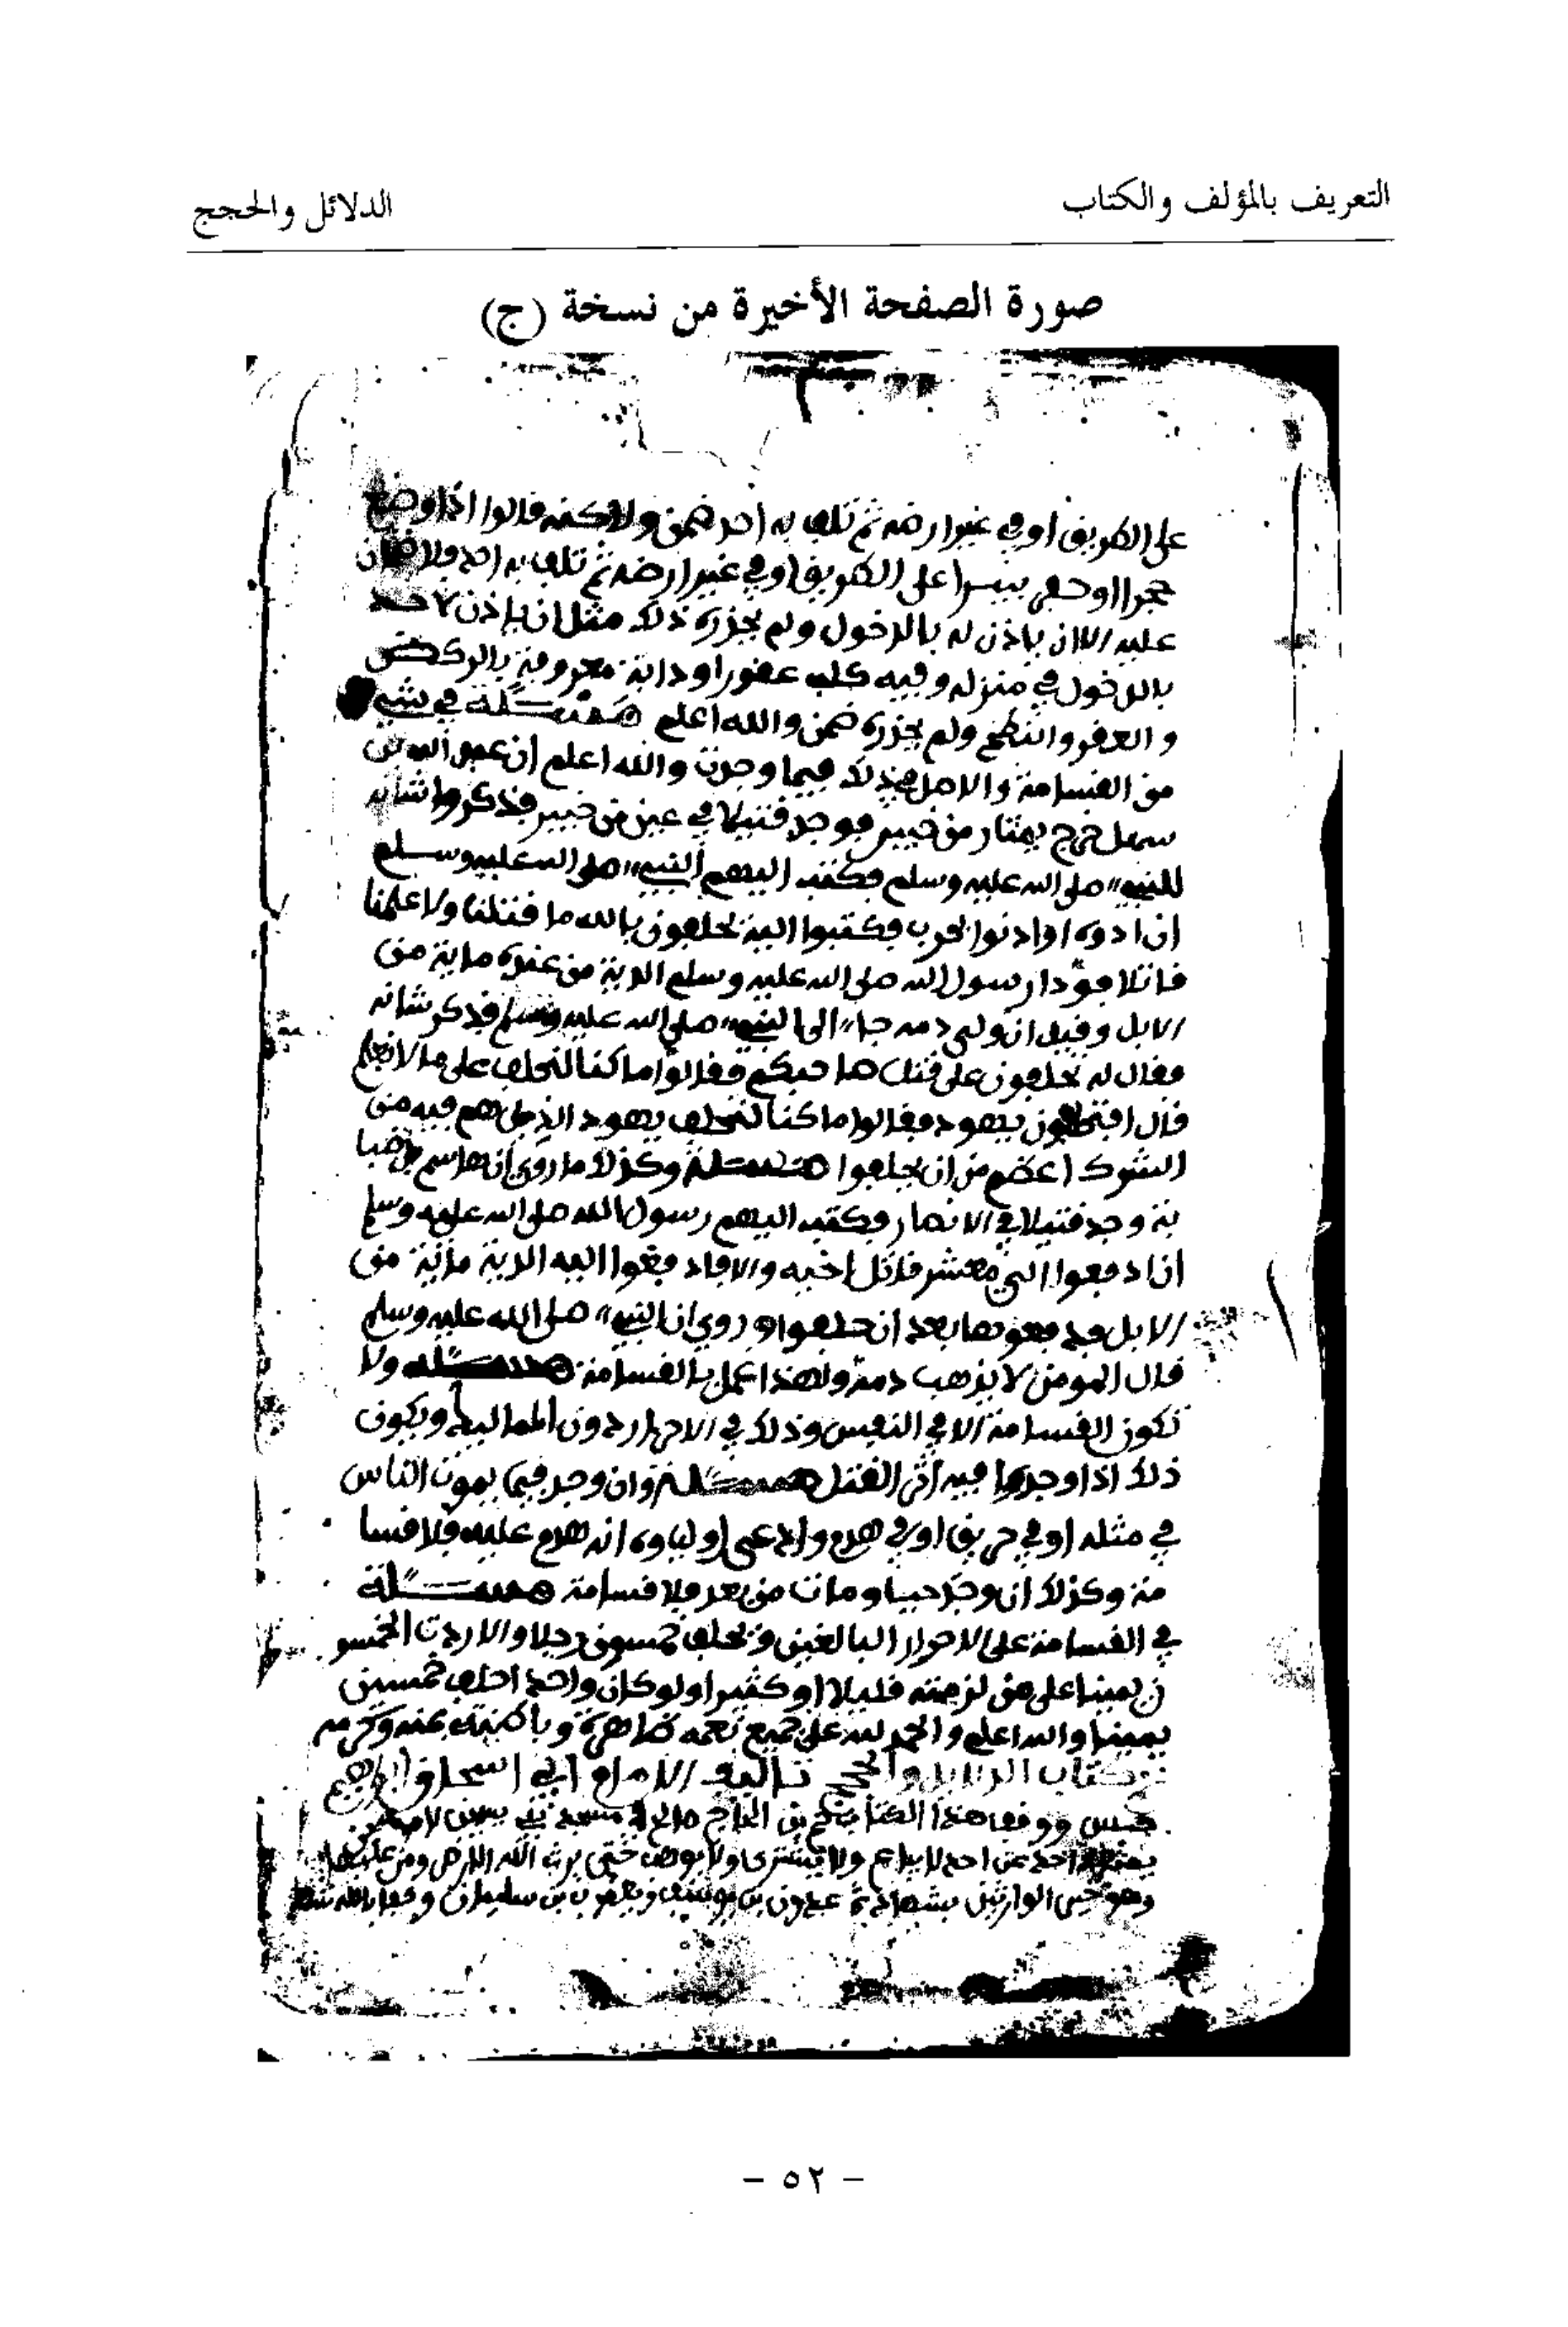 التعريف بالمؤلف والكتاب
الدلائل والحجج
صورة الصفحة الأخيرة من نسخة (ج)
على الطريق او في غير ارضه ثم تلف به احد ضمن ولاكنه قالوا اذا وضع
حجرا او حفر بيرا على الطريق او في غير ارضه ثم تلف به احد ولا ضمان
عليه الا ان ياذن له بالدخول ولم يحذره ذلك مثل ان ياذن لاحد
بالدخول في منزله وفيه كلب عقورا ودابة معروفة بالركض
و العقر والنطح ولم يحذره ضمن والله اعلم مسئلة في شيء
من القسامة والاصل في ذلك فيما وجدت والله اعلم ان عبد الله بن
سهل خرج يمتار من خيبر فوجد قتيلا في عين من خيبر فذكروا شانه
للنبيء صلى الله عليه وسلم فكتب اليهم النبيء صلى الله عليه وسلم
ان ادوه او اذنوا بحرب فكتبوا اليه يحلفون بالله ما قتلنا ولا علمنا
قاتلا فودا رسول الله صلى الله عليه وسلم الدية من عنده ماية من
الابل وقيل ان ولي دمه جاء الى النبيء صلى الله عليه وسلم فذكر شانه
فقال له تحلفون على قتل صاحبكم فقالوا ما كنا لنحلف على ما لا نعلم
قال افتحلفون يهود فقالوا ما كنا لنحلف يهود الذي هم فيه من
الشرك اعضم من ان يحلفوا مسئلة وكذلك ما روي ان
بة وجد قتيلا في الانصار فكتب اليهم رسول الله صلى الله عليه وسلم
ان ادفعوا الي معشر قاتل اخيه والا فادفعوا اليه الدية ماية من
الابل فدفعوها بعد ان حلفوا وروي ان النبيء صلى الله عليه وسلم
قال المومن لا يذهب دمه ولهذا عمل بالقسامة مسئلة ولا
تكون القسامة الا في النفس وذلك في الاحرار دون المماليك ويكون
ذلك اذا وجدوا فيه اثر القتل مسئلة وان وجد فيما يموت الناس
في مثله او في حريق او في هدم وادعى اولياوه انه هدم عليه فلا قسا
مة وكذلك ان وجد حيا ومات من بعد فلا قسامة مسئلة
في القسامة على الاحرار البالغين ويحلف خمسون رجلا والا ردت الخمسو
ن يمينا على من لزمته قليلا او كثيرا ولو كان واحد احلف خمسين
يمينا والله اعلم والحمد لله على جميع نعمه ظاهرة وباطنة بمنه وكرمه
تم كتاب الدلايل والحجج تاليف الامام ابي اسحاق ابراهيم
ووقف هذا الكتاب بن الحاج صالح مسجد بني يسجن
احد عن احد لا يباع ولا يشترى ولا يوهب حتى يرث الله الارض ومن عليها
وهو خير الوارثين بشهادة عدون بن يوسف ويعقوب بن سليمان
- ٥٢ -